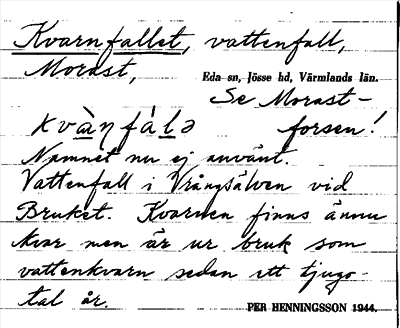 Kvarnfallet, vattenfall,
Morast,
Eda sn, Jösse hd, Värmlands län.
Se Morast-
kvàŋfálə forsen!
Namnet nu ej använt.
Vattenfall i Vrångsälven vid
Bruket. Kvarnen finns ännu
kvar men är ur bruk som
vattenkvarn sedan ett tjugo-
tal år.
PER HENNINGSSON 1944.